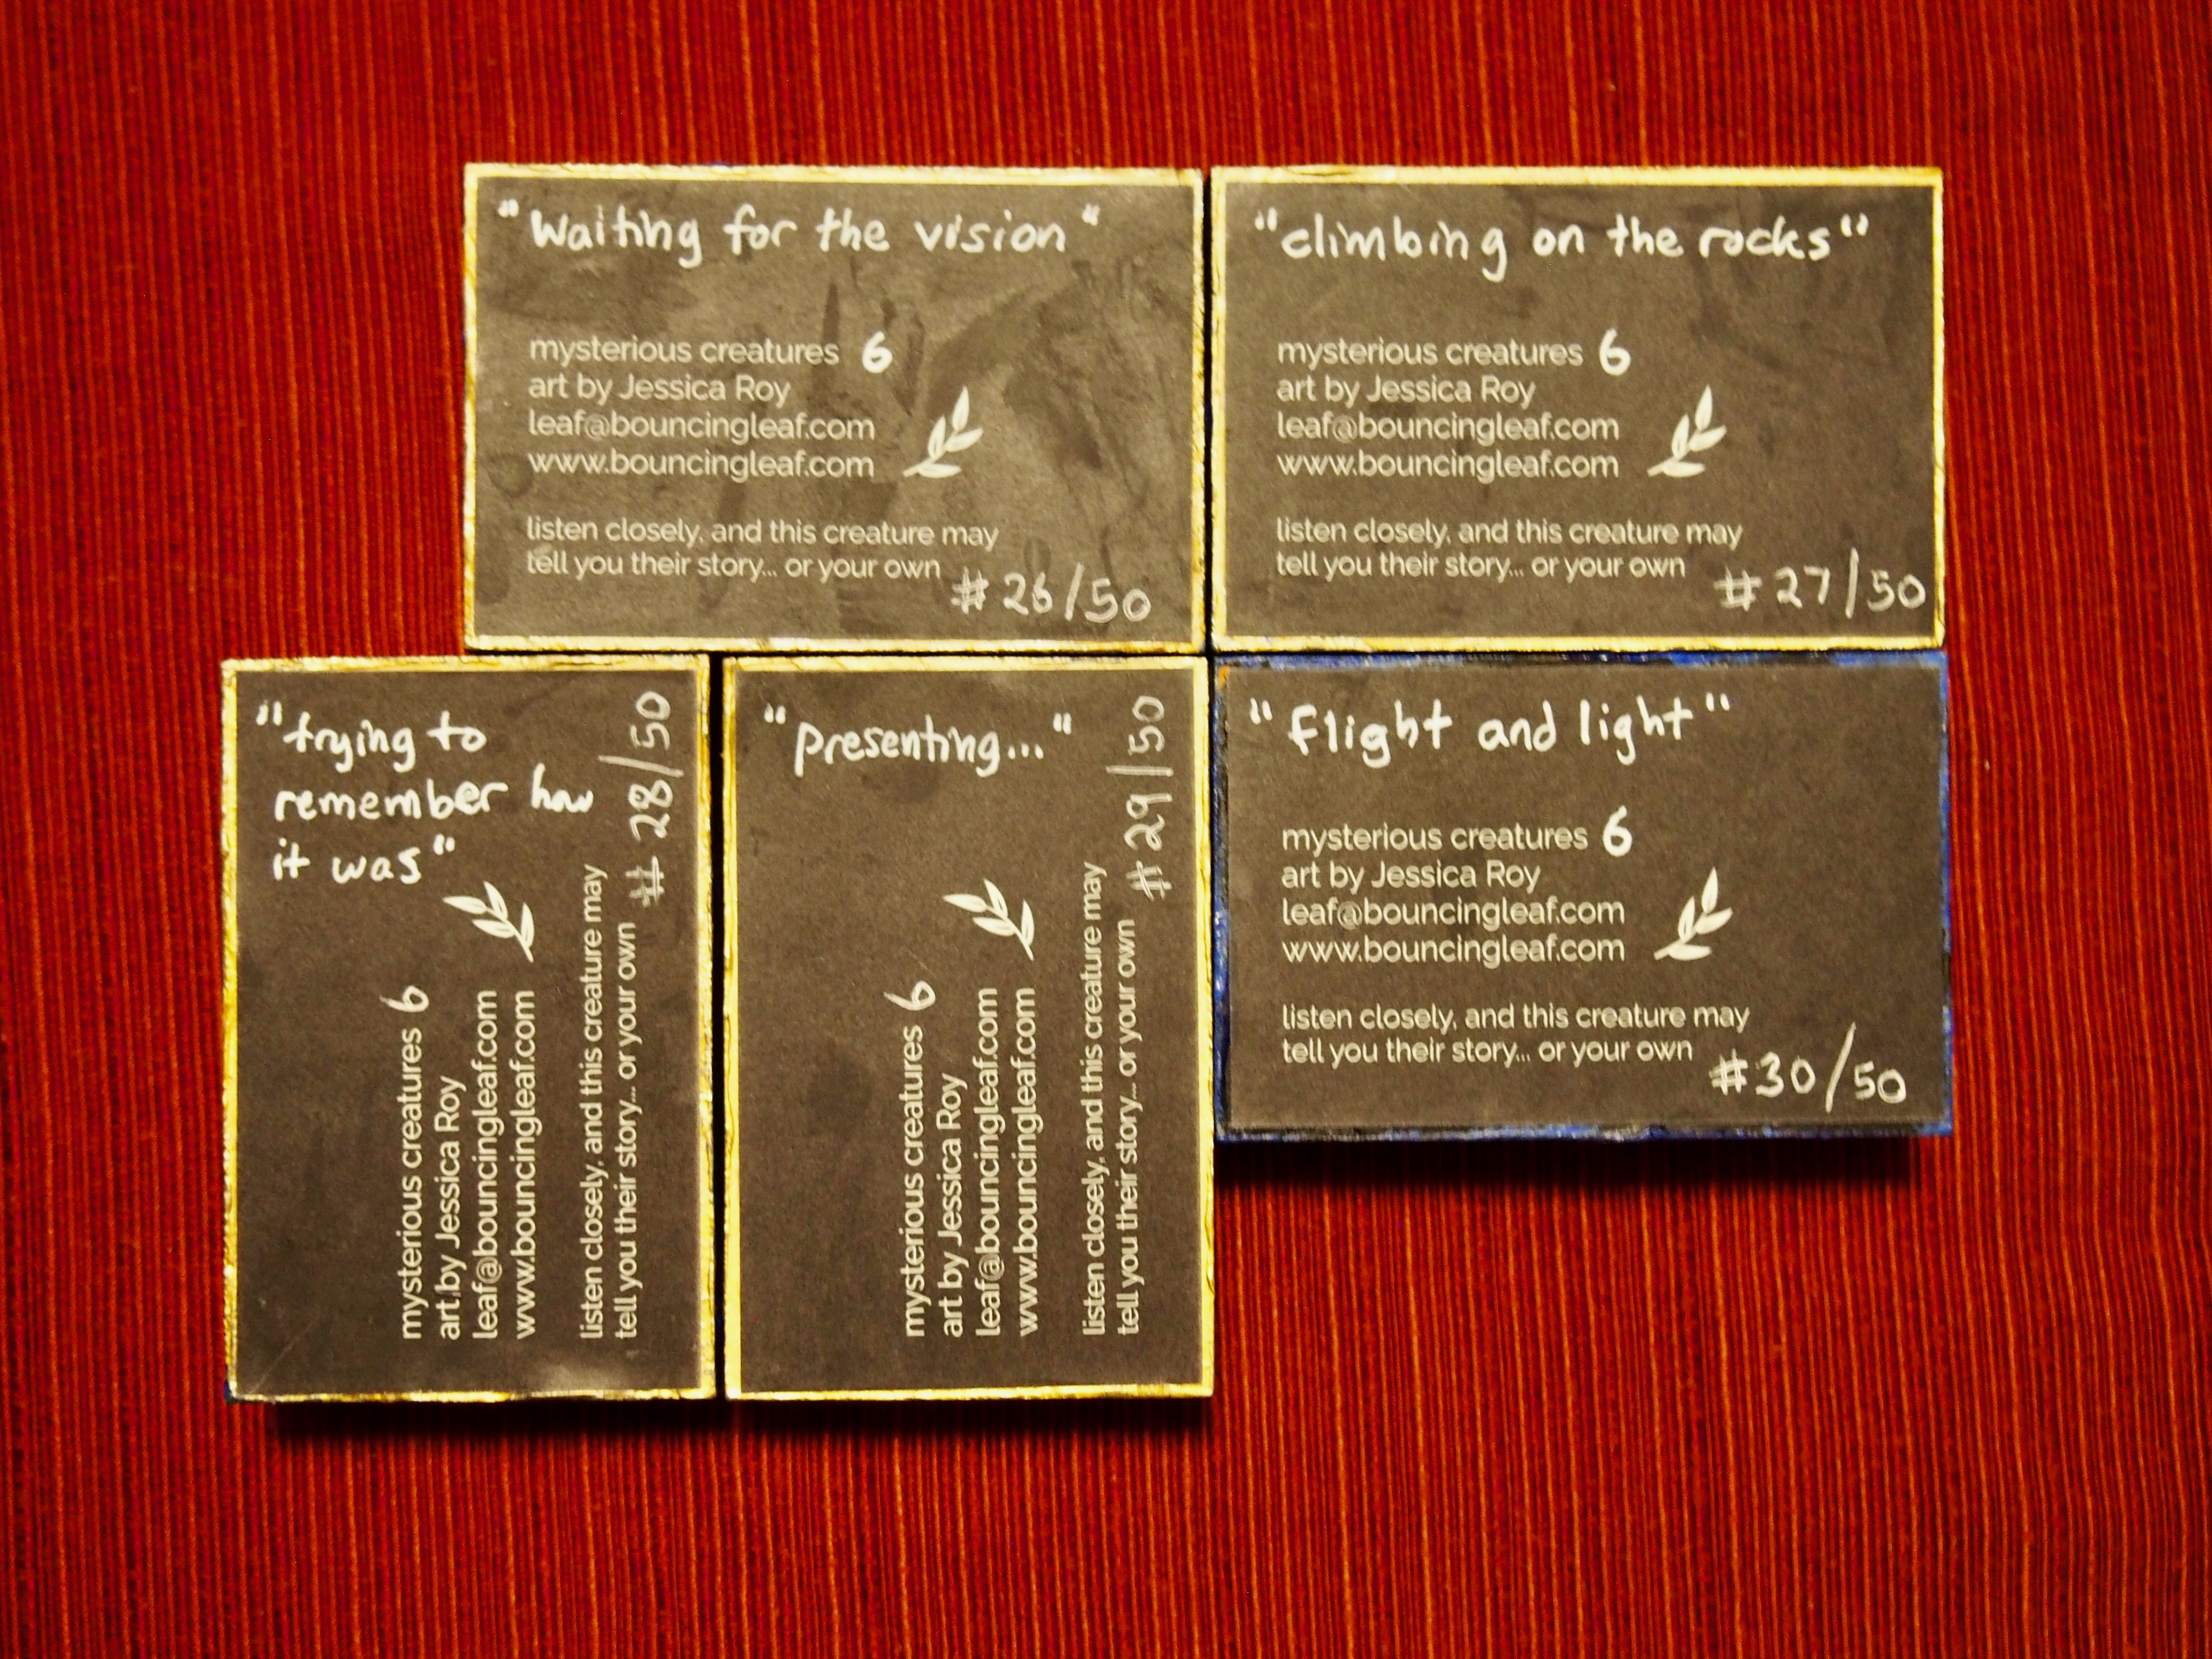 "Waiting for the vision"
mysterious creatures 6
art by Jessica Roy
leaf@bouncingleaf.com
www.bouncingleaf.com
listen closely, and this creature may
tell you their story... or your own
#26/50
"climbing on the rocks"
mysterious creatures 6
art by Jessica Roy
leaf@bouncingleaf.com
www.bouncingleaf.com
listen closely, and this creature may
tell you their story... or your own
#27/50
"trying to
remember how
it was"
mysterious creatures 6
art by Jessica Roy
leaf@bouncingleaf.com
www.bouncingleaf.com
listen closely, and this creature may
tell you their story... or your own
#28/50
"presenting..."
mysterious creatures 6
art by Jessica Roy
leaf@bouncingleaf.com
www.bouncingleaf.com
listen closely, and this creature may
tell you their story... or your own
#29/50
"flight and light"
mysterious creatures 6
art by Jessica Roy
leaf@bouncingleaf.com
www.bouncingleaf.com
listen closely, and this creature may
tell you their story... or your own
#30/50